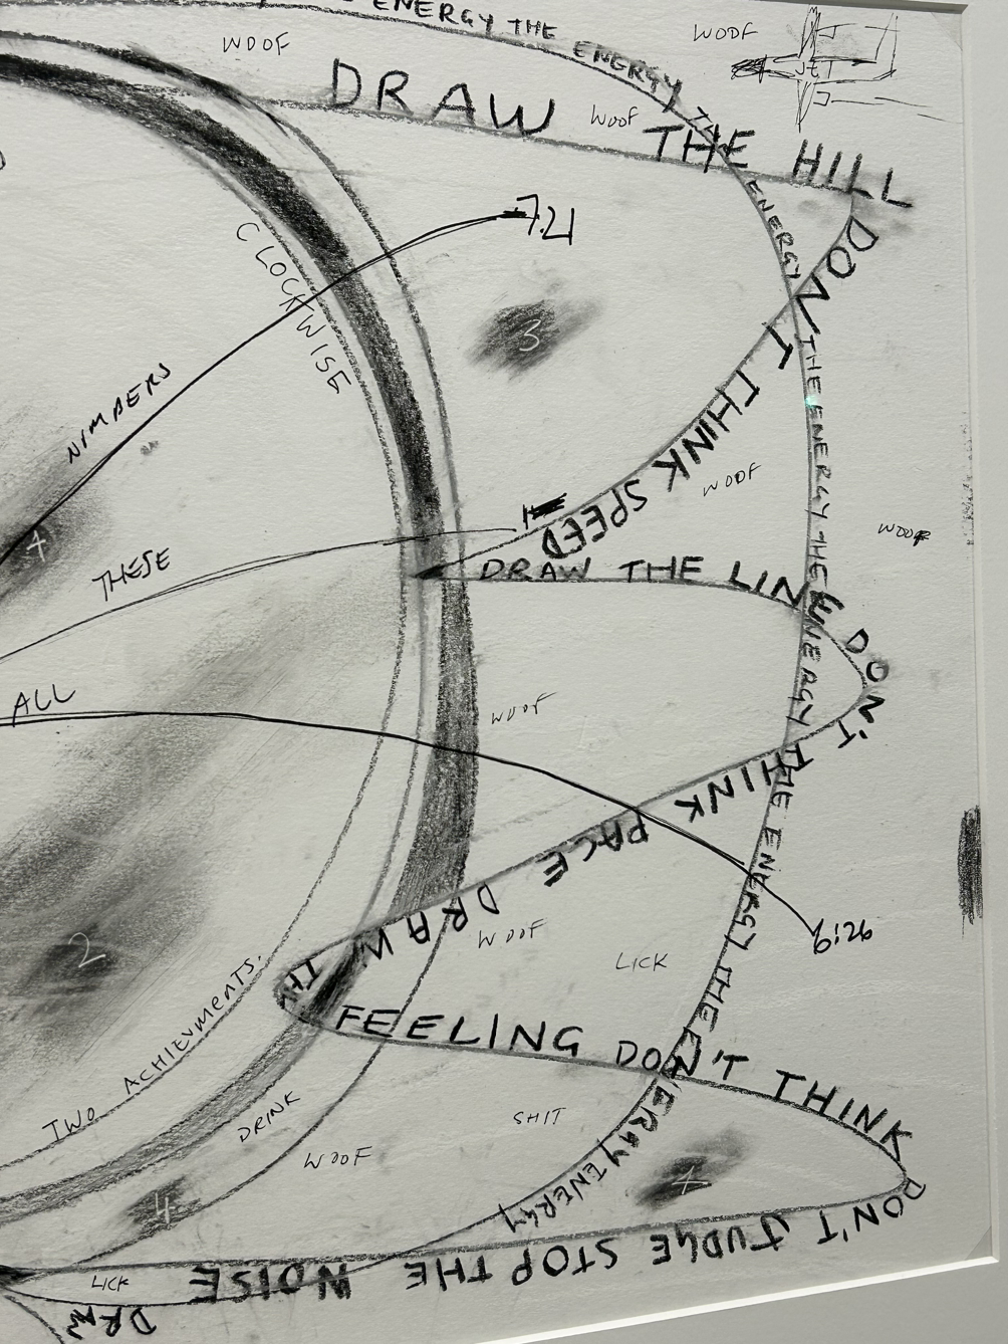 ENERGY THE ENERGY THE ENERGY THE ENERGY THE ENERGY THE ENERGY THE ENERGY THE ENERGY ENERGY
WOOF
WOOF
JET
DRAW THE HILL DON'T THINK SPEED
WOOF
7.21
CLOCKWISE
3
NUMBERS
1
WOOF
WOOF
THESE
DRAW THE LINE DON'T THINK PACE DRAW TH FEELING DON'T THINK DON'T JUDGE STOP THE NOISE
ALL
WOOF
6:26
2
WOOF
LICK
TWO ACHIEVMENTS.
DRINK
SHIT
WOOF
1
4
LICK
DRAW